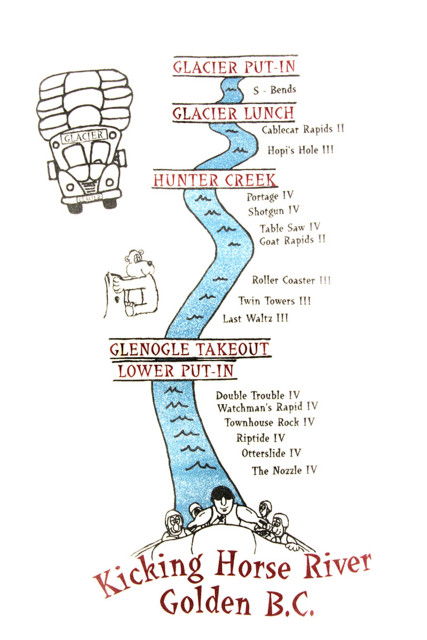 GLACIER PUT-IN
S - Bends
GLACIER LUNCH
Cablecar Rapids II
Hopi's Hole III
GLACIER
HUNTER CREEK
Portage IV
Shotgun IV
Table Saw IV
Goat Rapids II
Roller Coaster III
Twin Towers III
Last Waltz III
GLENOGLE TAKEOUT
LOWER PUT-IN
Double Trouble IV
Watchman's Rapid IV
Townhouse Rock IV
Riptide IV
Otterslide IV
The Nozzle IV
Kicking Horse River
Golden B.C.